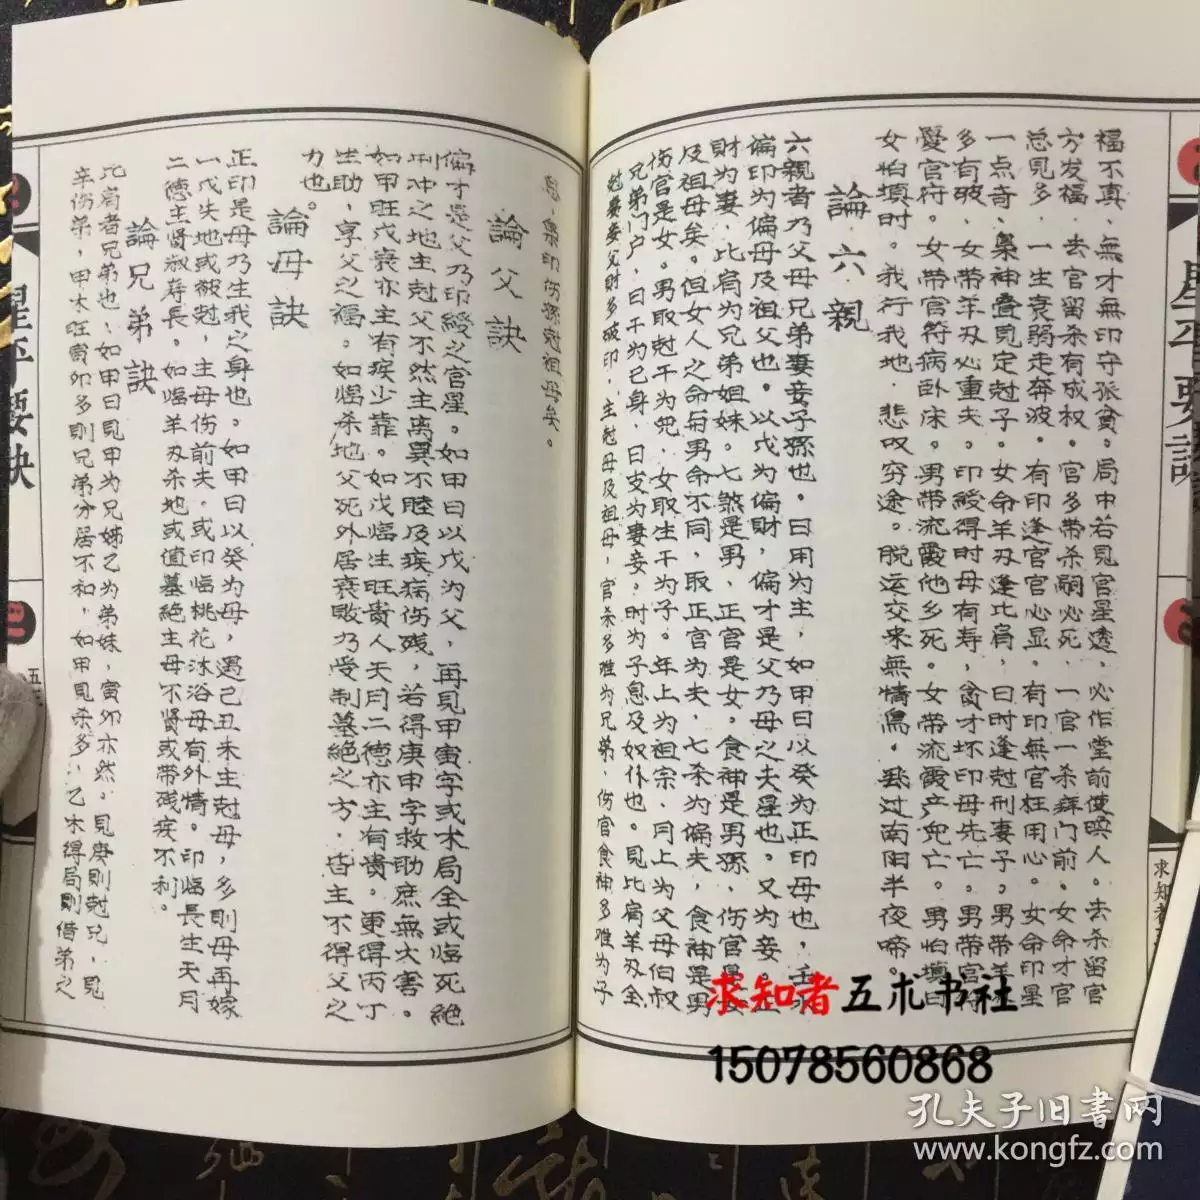 福不真，無才無印守孤貧。局中若見官星透，必作堂前使喚人。去杀留官
方发福，去官留杀有成权。官多带杀嗣必死，一官一杀拜门前。女命才官
总見多，一生衰弱走奔波。有印逢官官必显，有印無官枉用心。女命印星
一点奇，枭神叠見定尅子。女命羊刃逢比肩，日时逢尅刑妻子。男带羊刃
多有破，女带羊刃必重夫。印綬得时母有寿，貪才坏印母先亡。男带官符
憂官符。女带官符病卧床。男带流霞他乡死。女带流霞产兜亡。男怕填日
女怕填时。我行我地，悲叹穷途。脱运交来無情鳥。飛过南阳半夜啼。
論六親
六親者乃父母兄弟妻妾子孫也。日用为主，如甲日以癸为正印母也，壬水
偏印为偏母及祖父也。以戊为偏財，偏才是父乃母之夫星也。又为妾。正
財为妻，比肩为兄弟姐妹。七煞是男，正官是女。食神是男孫，伤官是女
及祖母矣。但女人之命与男命不同，取正官为夫，七杀为偏夫，食神是男
伤官是女。男取尅干为兜，女取生干为子。年上为祖宗，月上为父母伯叔
兄弟门户，日干为已身，日支为妻妾，时为子息及奴仆也。見比肩羊刃全
尅妻妾父財多破印，主尅母及祖母，官杀多难为兄弟，伤官食神多难为子
息，枭印伤孫尅祖母矣。
論父訣
偏才是父乃印綬之官星。如甲日以戊为父，再見甲寅字或木局全或临死絕
刑冲之地主尅父不然主离異不睦及疾病伤残，若得庚申字救助庶無大害。
如甲旺戊衰亦主有疾少靠。如戊临生旺贵人天月二德亦主有贵。更得丙丁
生助，享父之福。如临杀地父死外居衰败乃受制墓絕之方，皆主不得父之
力也。
論母訣
正印是母乃生我之身也。如甲日以癸为母，遇己丑未主尅母，多則母再嫁
一戊失地或被尅，主母伤前夫。或印临桃花沐浴母有外情。印临長生天月
二德主贤淑寿長。如临羊刃杀地或值墓絶主母不贤或带残疾不利。
論兄弟訣
比肩者兄弟也，如甲日見甲为兄姊乙为弟妹，寅卯亦然。見庚則尅兄，見
辛伤弟，甲木旺寅卯多則兄弟分居不和，如甲見杀多，乙木得局則借弟之
星平要訣
求知者五术书社
15078560868
孔夫子旧書网
www.kongfz.com